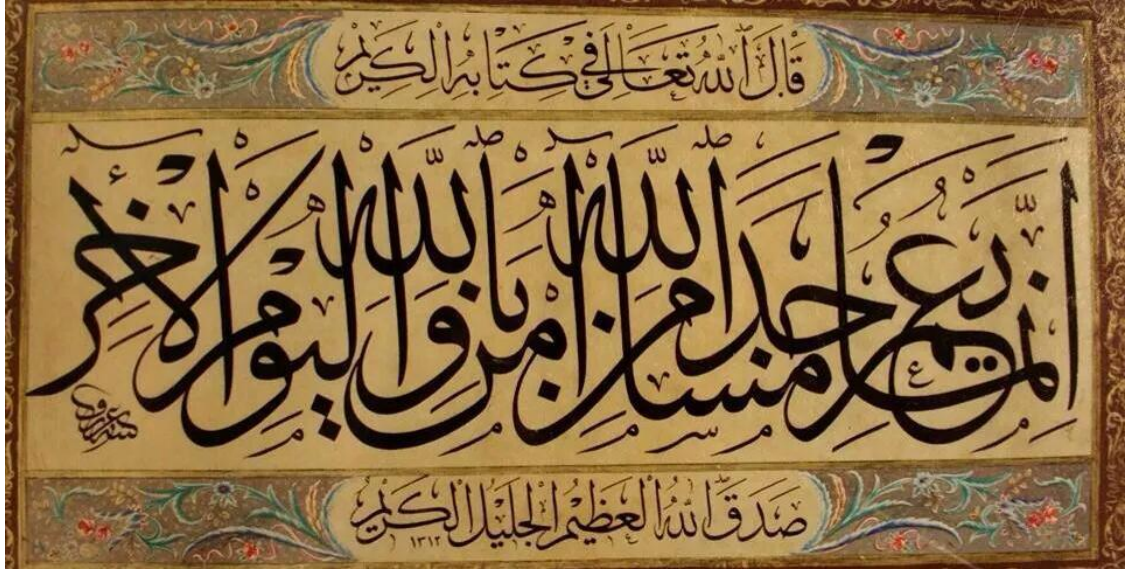 قَالَ اللّٰهُ تَعَالٰى فِي كِتَابِهِ الْكَرِيمِ
اِنَّمَا يَعْمُرُ مَسَاجِدَ اللّٰهِ مَنْ اٰمَنَ بِاللّٰهِ وَالْيَوْمِ الْاٰخِرِ
صَدَقَ اللّٰهُ الْعَظِيمُ الْجَلِيلُ الْكَرِيمُ
١٣١٢